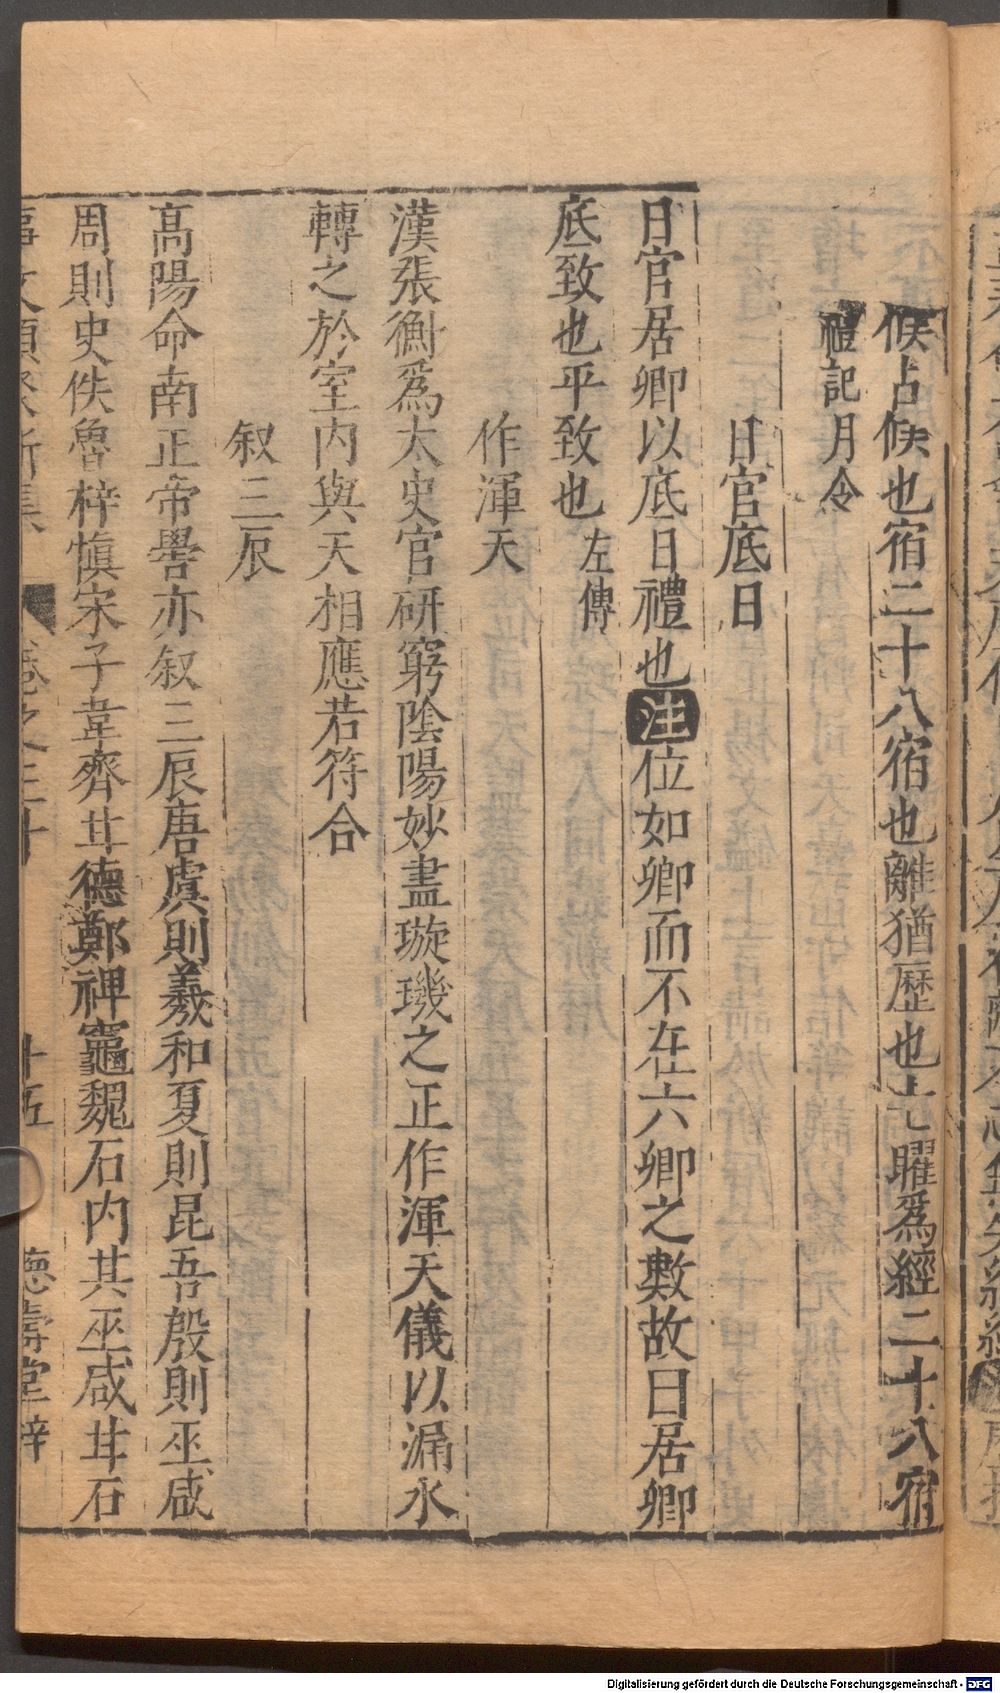 候占候也宿二十八宿也離猶歷也七曜爲經二十八宿
禮記月令
日官底日
日官居卿以底日禮也注位如卿而不在六卿之數故曰居卿
底致也平致也左傳
作渾天
漢張衡爲太史官研窮陰陽妙盡璇璣之正作渾天儀以漏水
轉之於室内與天相應若符合
叙三辰
高陽命南正帝嚳亦叙三辰唐虞則羲和夏則昆吾殷則巫咸
周則史佚魯梓慎宋子韋齊甘德鄭禆竈魏石内其巫咸甘石
事文類聚新集 卷之三十 十五 德壽堂梓
Digitalisierung gefördert durch die Deutsche Forschungsgemeinschaft - DFG